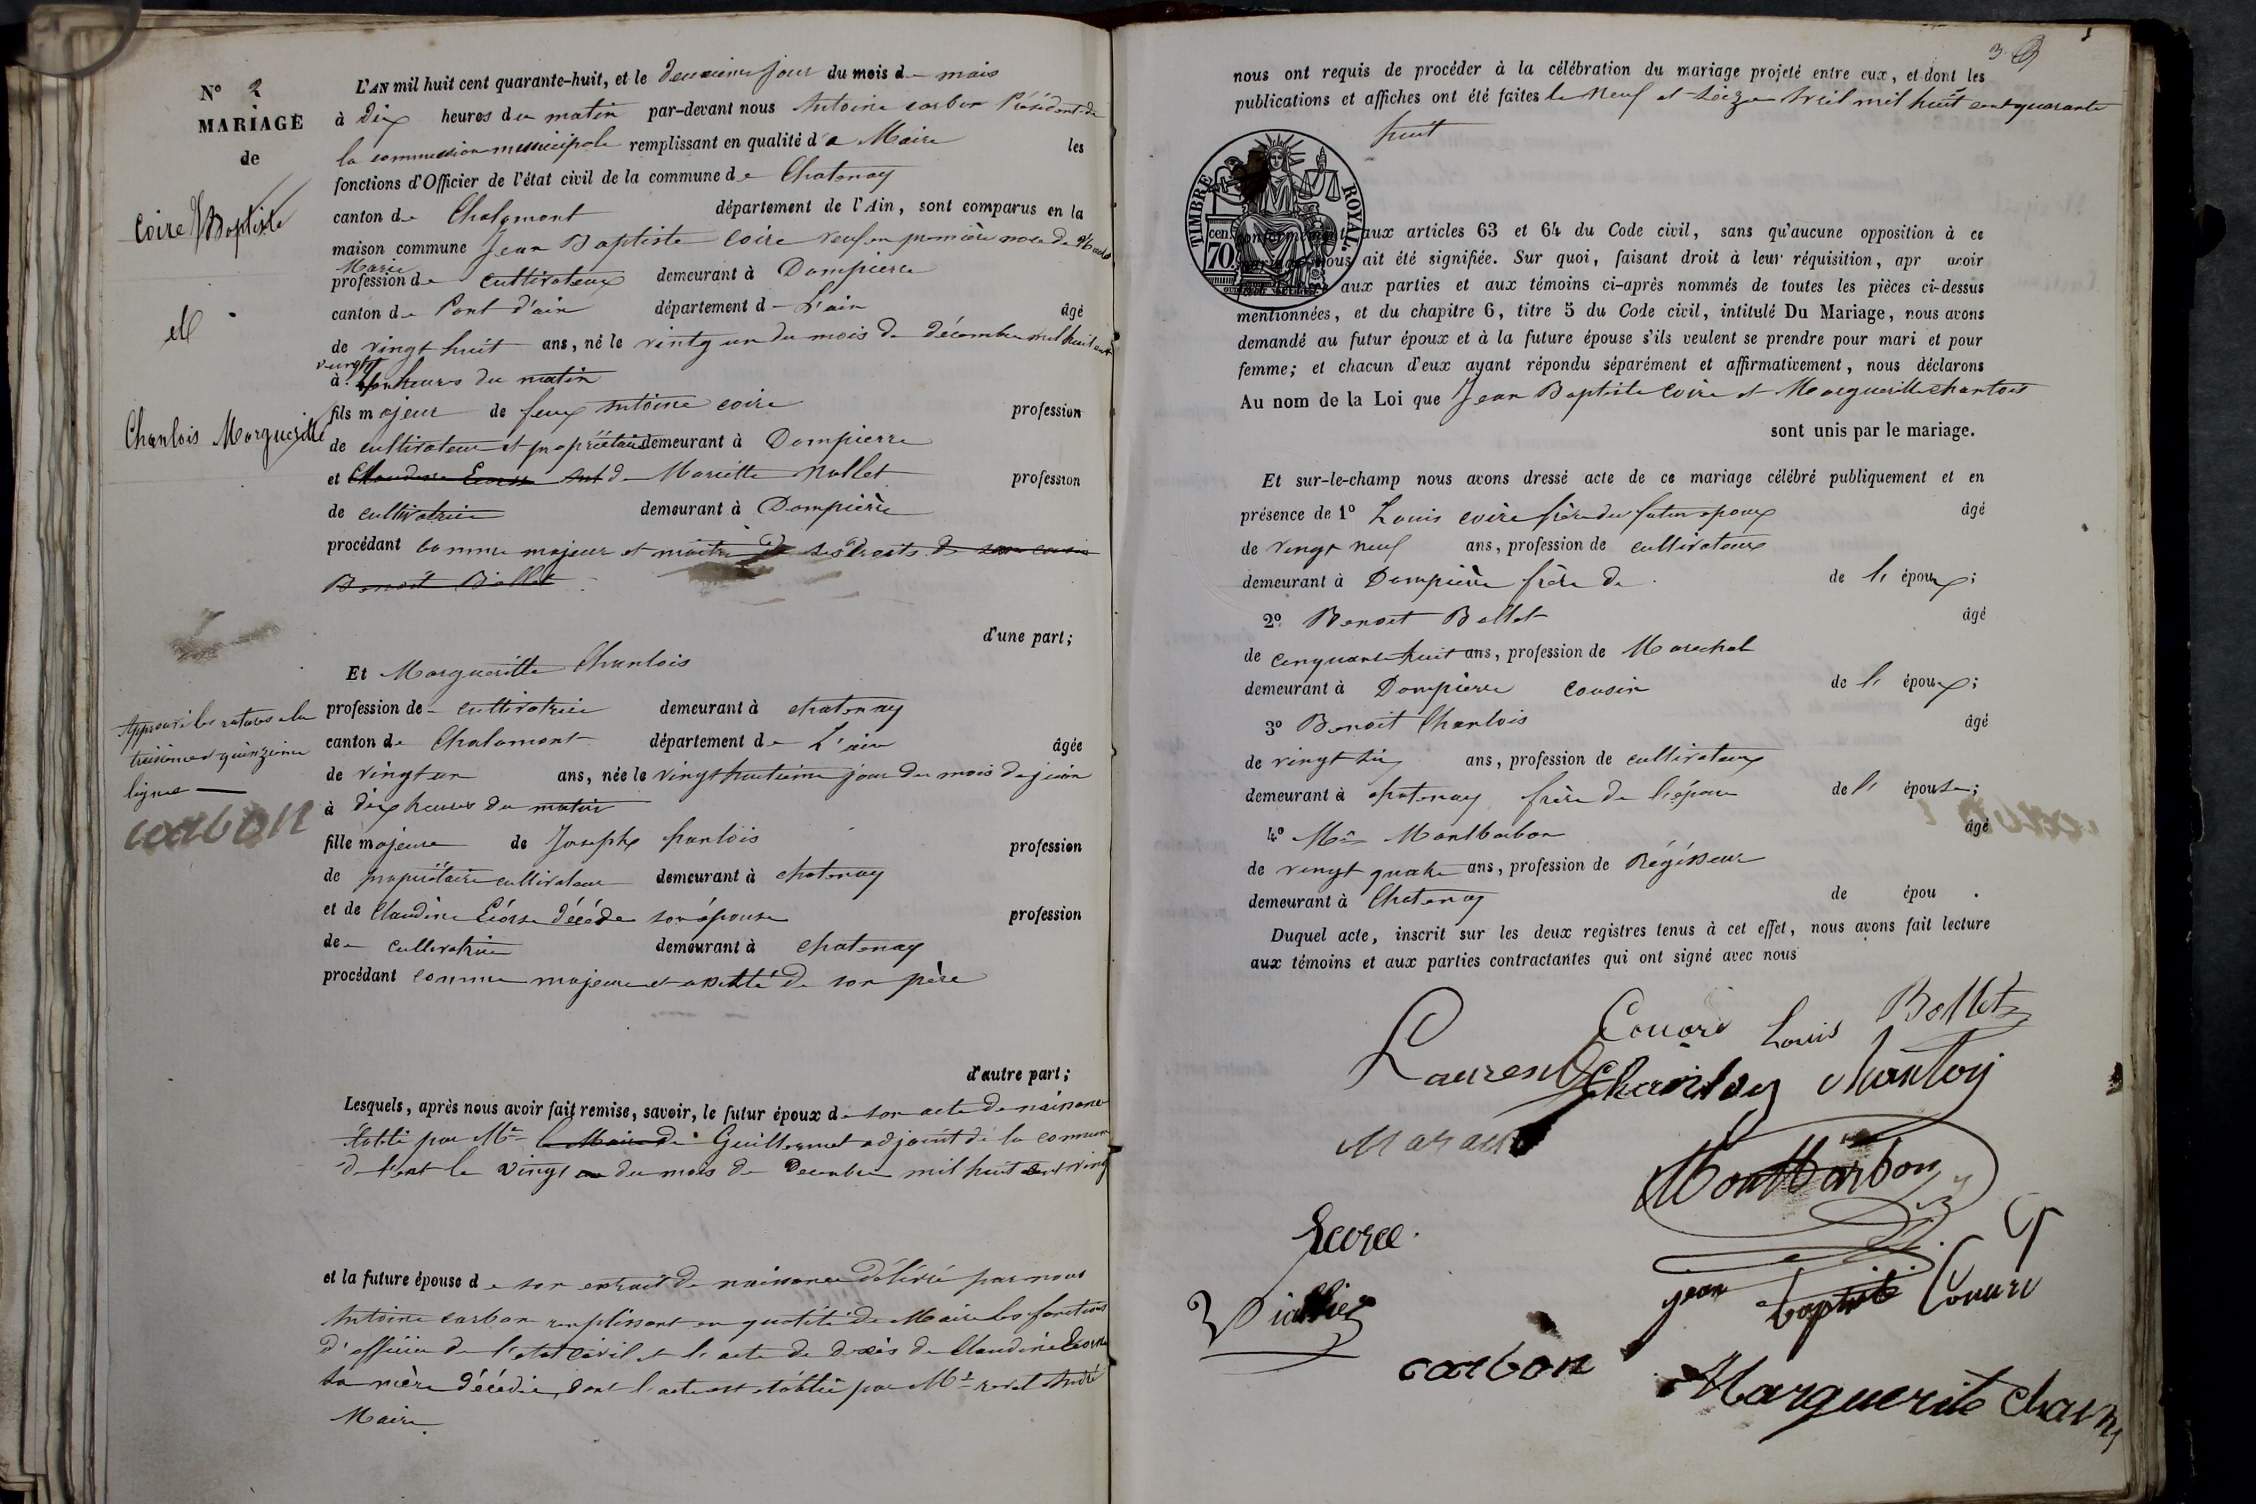 N° 2
MARIAGE
de
Coire J Baptiste
et
Chanlois Marguerite
L'AN mil huit cent quarante-huit, et le deuxieme jour du mois de mais
à Dix heures du matin par-devant nous Antoine carbon Président de
la commission municipale remplissant en qualité d'a Maire les
fonctions d'Officier de l'état civil de la commune de Chatenay
canton de Chalamont département de l'Ain, sont comparus en la
maison commune Jean Baptiste Coire veuf en première noce de
Marie
profession de cultivateur demeurant à Dompierre
canton de Pont d'ain département d L'ain âgé
de vingt huit ans, né le vintg un du mois de décembre mil huit cent
vingt
à heures du matin
fils majeur de feux Antoine coire profession
de cultivateur et propriétaire demeurant à Dompierre
et Claudine Ecorse de Mariette Nallet profession
de cultivatrice demeurant à Dompièrre
procédant comme majeur et maitre de ses droits de son cousin
Benoit Bollet
d'une part;
Et Margueritte Chanlois
profession de cultivatrice demeurant à chatenay
canton de Chalamont département de L'ain âgée
de vingt un ans, née le vingt huitieme jour du mois de juin
à dix heures du matin
fille majeure de Joseph chanlois profession
de propriétaire cultivateur demeurant à chatenay
et de Claudine Ecorse décédée son épouse profession
de cultivatrice demeurant à chatenay
procédant comme majeure et assistté de son père
d'autre part;
Approuvé les ratures a la
treisieme et quinzieme
lignes
carbon
Lesquels, après nous avoir fait remise, savoir, le futur époux de son acte de naissance
établi par Mr le Maire de Guillermet adjoint de la commune
le vingt un du mois de Decembre mil huit cent vingt
et la future épouse de son extrait de naissance délivré par nous
Antoine carbon remplissant en qualité de Maire les fonctions
d'officier de l'etat civil et l'acte de décès de Claudine Ecorse
sa mère décédée, dont l'acte est établie par Mr
Maire
3
nous ont requis de procéder à la célébration du mariage projeté entre eux, et dont les
publications et affiches ont été faites le Neuf et Seize Avril mil huit cent quarante
huit
TIMBRE ROYAL.
cen.
70
conformément aux articles 63 et 64 du Code civil, sans qu'aucune opposition à ce
nous ait été signifiée. Sur quoi, faisant droit à leur réquisition, apr avoir
aux parties et aux témoins ci-après nommés de toutes les pièces ci-dessus
mentionnées, et du chapitre 6, titre 5 du Code civil, intitulé Du Mariage, nous avons
demandé au futur époux et à la future épouse s'ils veulent se prendre pour mari et pour
femme; et chacun d'eux ayant répondu séparément et affirmativement, nous déclarons
Au nom de la Loi que Jean Baptiste Coire et Marguerite chanlois
sont unis par le mariage.
Et sur-le-champ nous avons dressé acte de ce mariage célébré publiquement et en
présence de 1° Louis coire frère du futur epoux âgé
de vingt neuf ans, profession de cultivateur
demeurant à Dompièrre frère de de l'époux;
2° Benoit Bollet âgé
de cinquante huit ans, profession de Marechal
demeurant à Dompièrre cousin de l'époux;
3° Benoit Chanlois âgé
de vingt six ans, profession de cultivateur
demeurant à chatenay frère de l'épouse de l'épouse;
4° Mr Montbarbon âgé
de vingt quatre ans, profession de Régisseur
demeurant à Chatenay de épou .
Duquel acte, inscrit sur les deux registres tenus à cet effet, nous avons fait lecture
aux témoins et aux parties contractantes qui ont signé avec nous
Couare Louis Bollet
Laurent Chanloy chanloy
Montbarbon
Ecorce
jean baptiste Couare
carbon
Marguerite